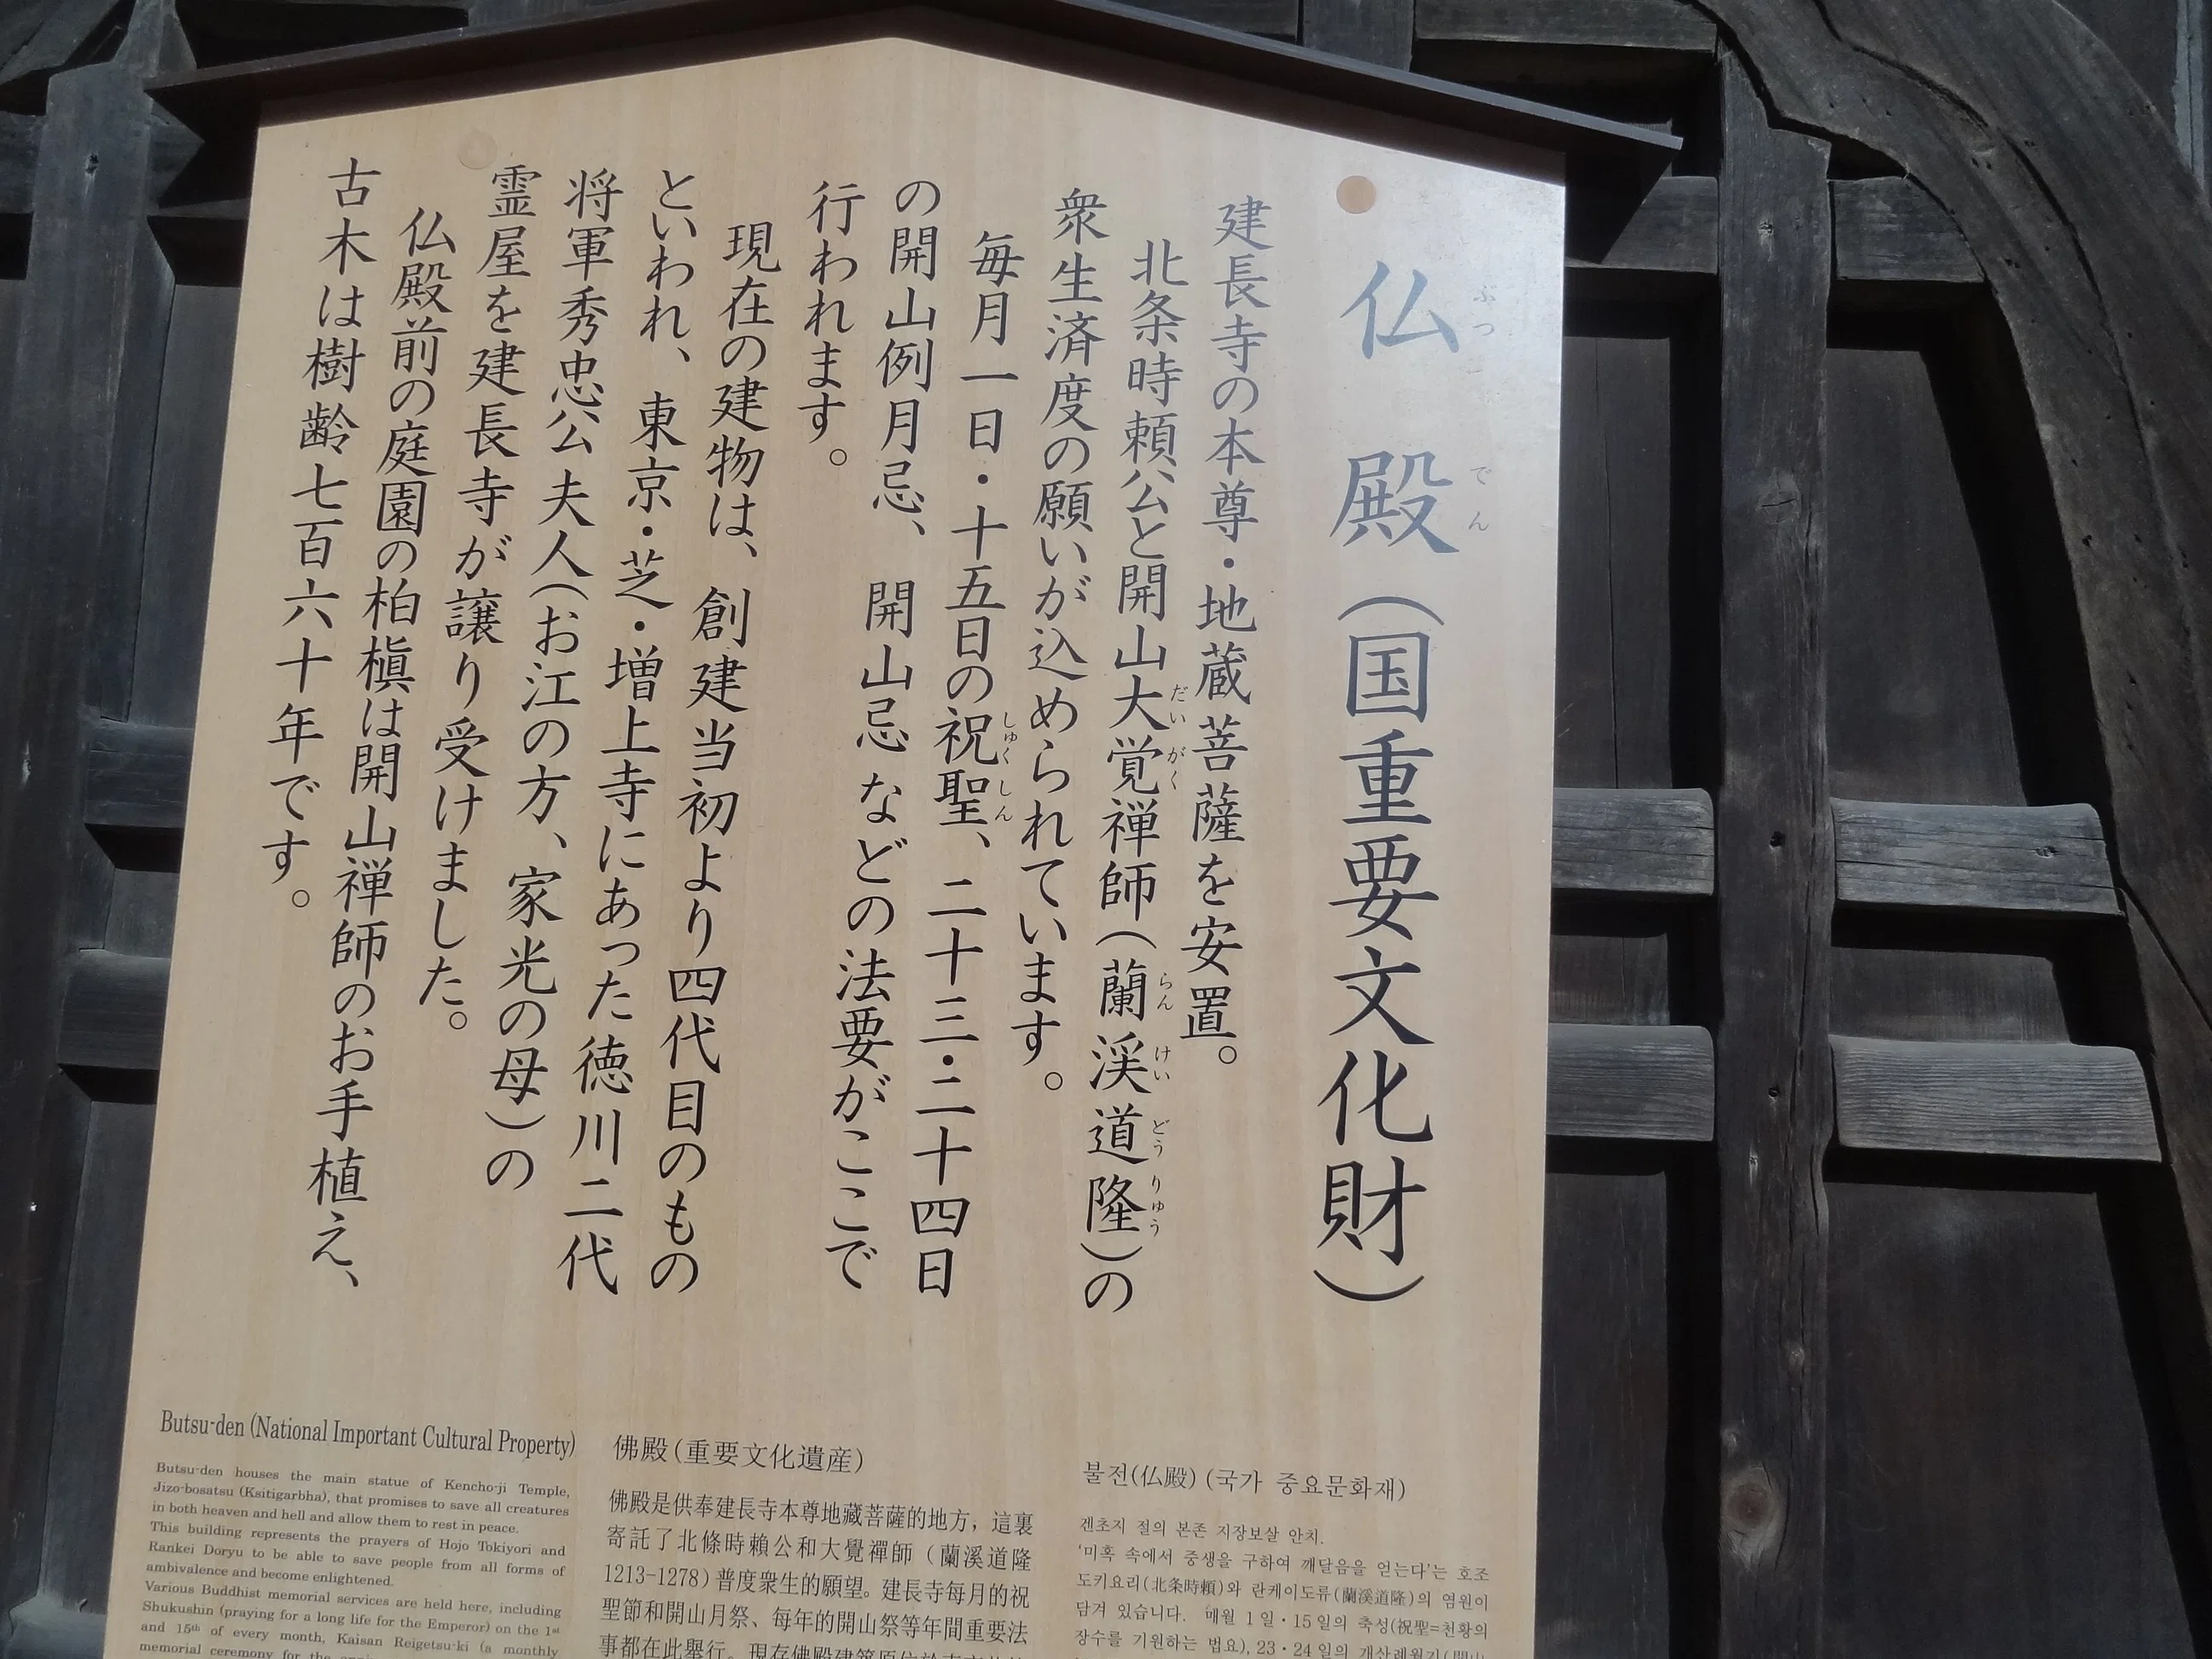 仏殿（国重要文化財）
ぶつでん
建長寺の本尊・地蔵菩薩を安置。
北条時頼公と開山大覚禅師（蘭渓道隆）の
だいがく らんけいどうりゅう
衆生済度の願いが込められています。
毎月一日・十五日の祝聖、二十三・二十四日
しゅくしん
の開山例月忌、開山忌などの法要がここで
行われます。
現在の建物は、創建当初より四代目のもの
といわれ、東京・芝・増上寺にあった徳川二代
将軍秀忠公夫人（お江の方、家光の母）の
霊屋を建長寺が譲り受けました。
仏殿前の庭園の柏槇は開山禅師のお手植え、
古木は樹齢七百六十年です。
Butsu-den (National Important Cultural Property)
Butsu-den houses the main statue of Kencho-ji Temple,
Jizo-bosatsu (Ksitigarbha), that promises to save all creatures
in both heaven and hell and allow them to rest in peace.
This building represents the prayers of Hojo Tokiyori and
Rankei Doryu to be able to save people from all forms of
ambivalence and become enlightened.
Various Buddhist memorial services are held here, including
Shukushin (praying for a long life for the Emperor) on the 1st
and 15th of every month, Kaisan Reigetsu-ki (a monthly
memorial ceremony for the
佛殿（重要文化遺産）
佛殿是供奉建長寺本尊地藏菩薩的地方，這裏
寄託了北條時賴公和大覺禪師（蘭溪道隆
1213-1278）普度衆生的願望。建長寺每月的祝
聖節和開山月祭、每年的開山祭等年間重要法
事都在此舉行。現存佛殿建築原位於
불전(仏殿) (국가 중요문화재)
겐초지 절의 본존 지장보살 안치.
‘미혹 속에서 중생을 구하여 깨달음을 얻는다’는 호조
도키요리(北条時頼)와 란케이도류(蘭渓道隆)의 염원이
담겨 있습니다. 매월 1일・15일의 축성(祝聖=천황의
장수를 기원하는 법요), 23・24일의 개산례월기(開山